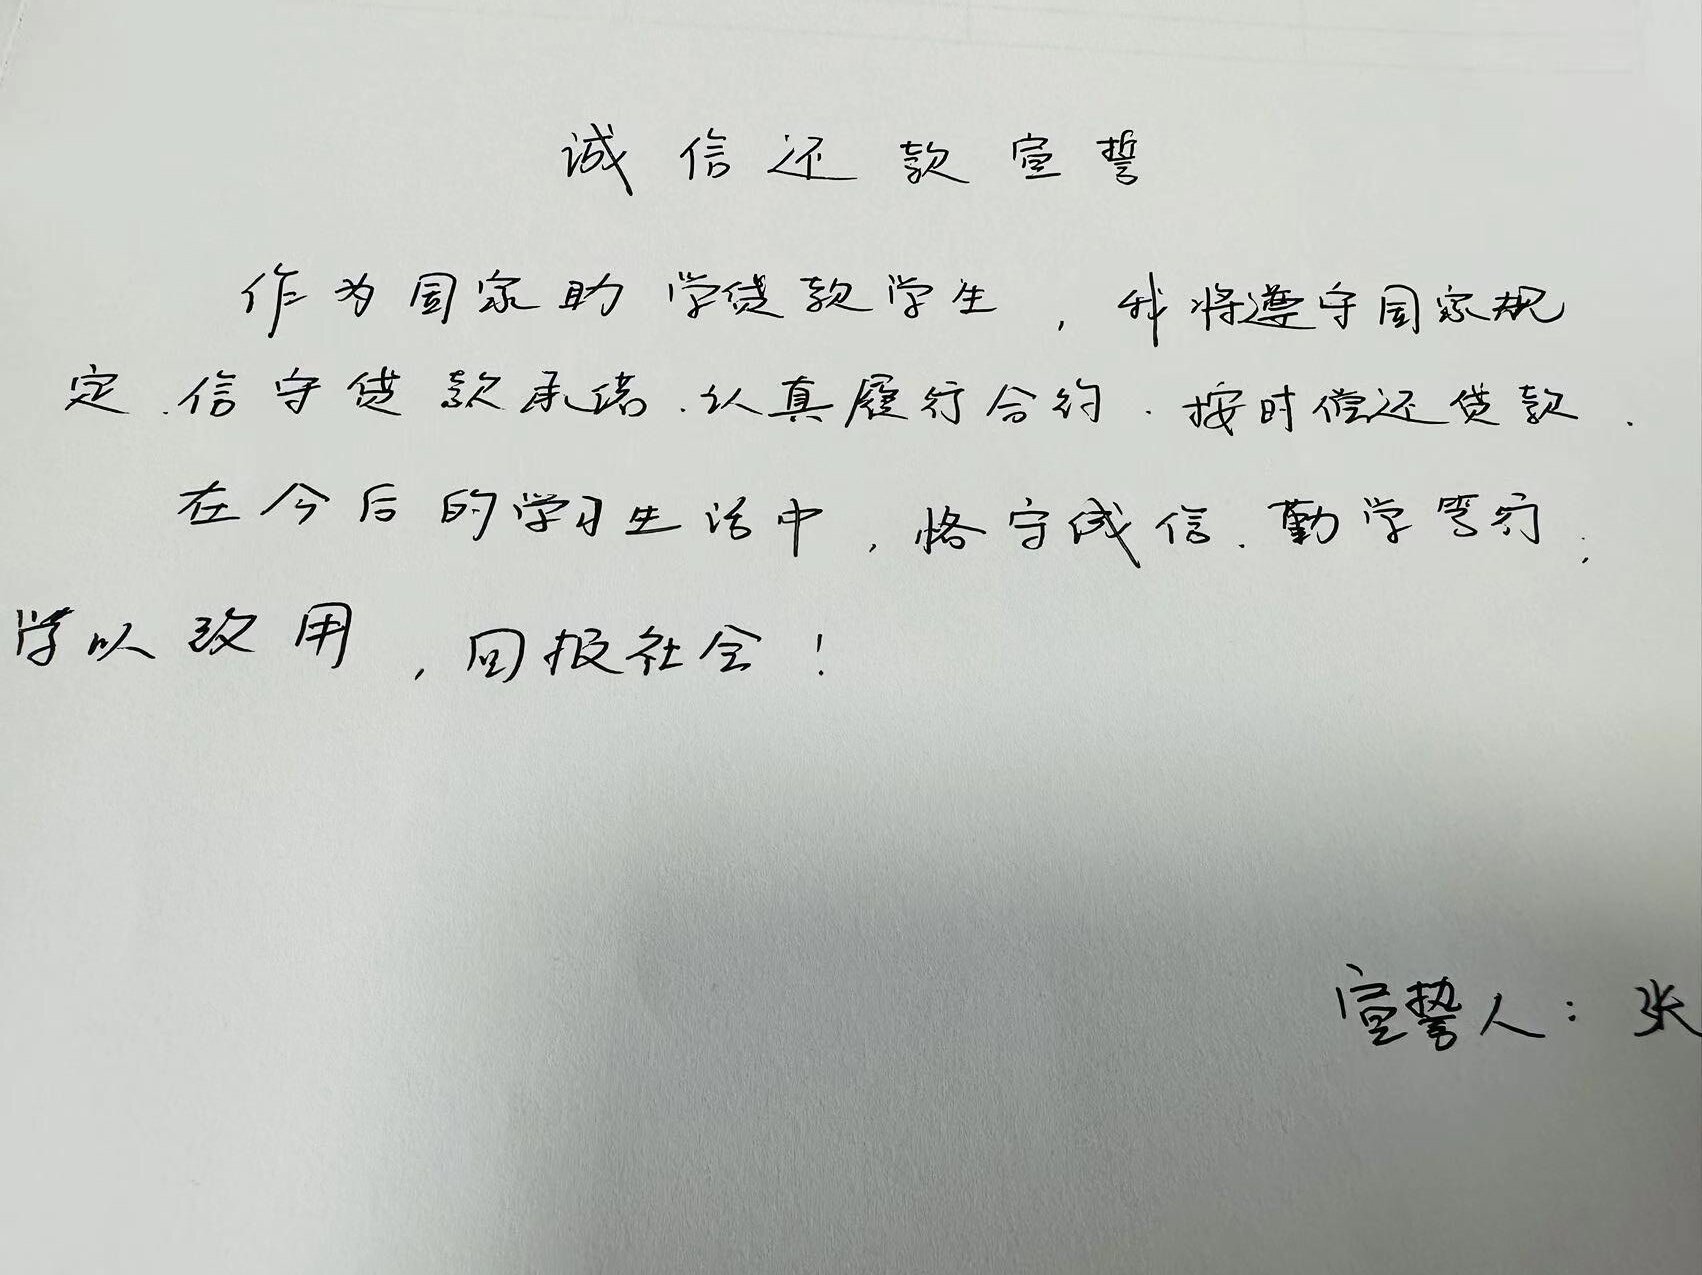 诚信还款宣誓
作为国家助学贷款学生，我将遵守国家规
定、信守贷款承诺、认真履行合约、按时偿还贷款.
在今后的学习生活中，恪守诚信、勤学笃行，
学以致用，回报社会！
宣誓人：张